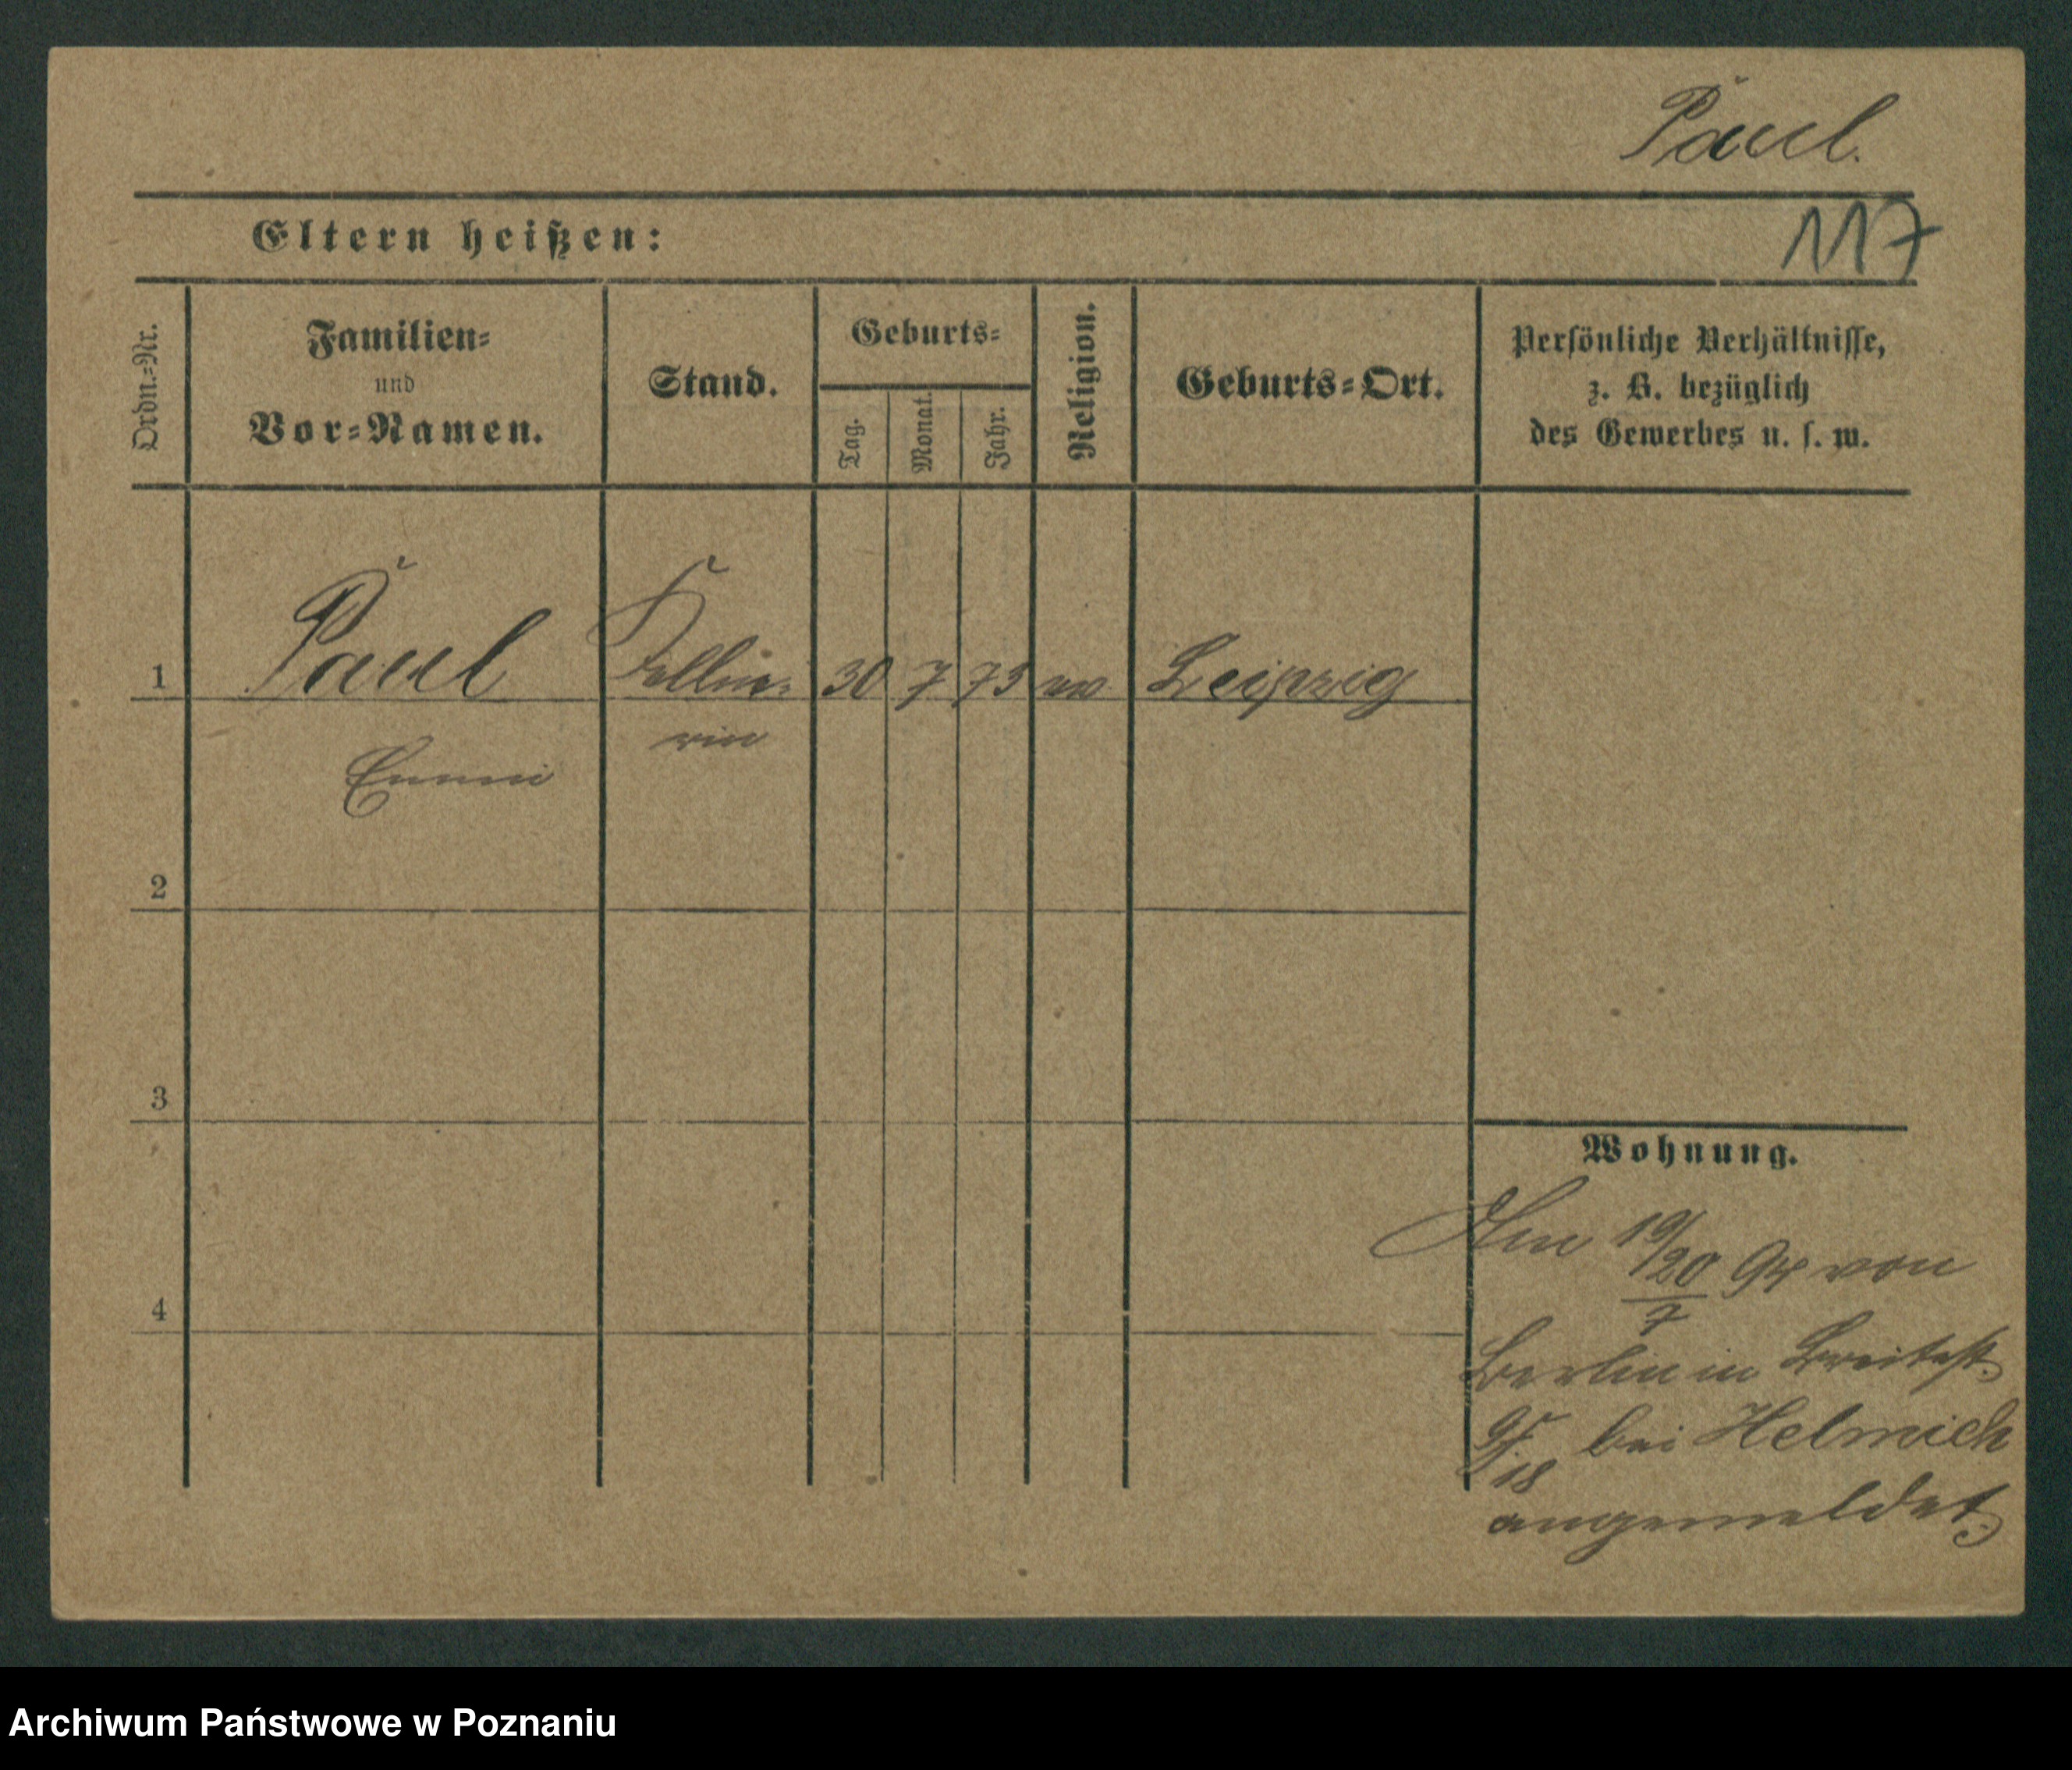 Paul.
117
Eltern heißen:
Ordn.=Nr.
Familien=
und
Vor=Namen.
Stand.
Geburts=
Tag.
Monat.
Jahr.
Religion.
Geburts=Ort.
Persönliche Verhältnisse,
z. B. bezüglich
des Gewerbes u. s. w.
1 Paul Kellne= 30 7 73 ev Leipzig
rin
Emmi
2
3
4
Wohnung.
19/20
7
von
Berlin in Breitestr.
bei Helmich
18
angemeldet
Archiwum Państwowe w Poznaniu